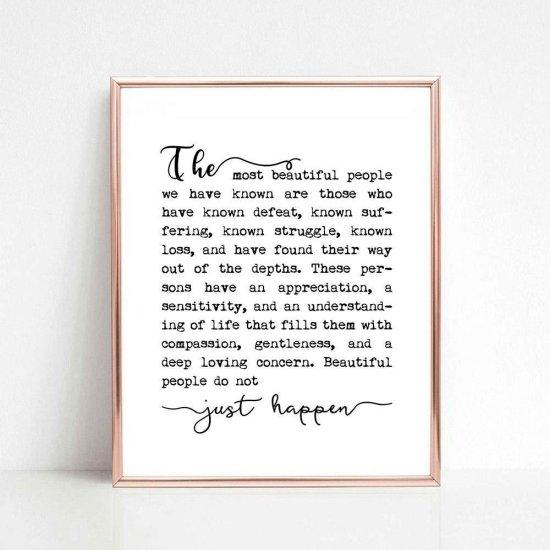 The most beautiful people
we have known are those who
have known defeat, known suf-
fering, known struggle, known
loss, and have found their way
out of the depths. These per-
sons have an appreciation, a
sensitivity, and an understand-
ing of life that fills them with
compassion, gentleness, and a
deep loving concern. Beautiful
people do not
just happen